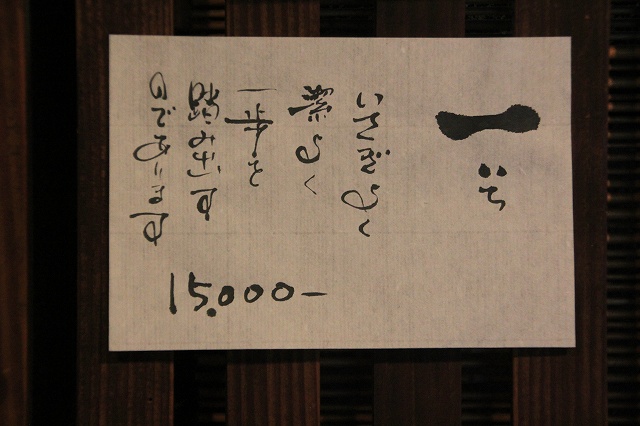 一 いち
いさぎよく
よく
一歩を
踏みだす
のであります
15.000-